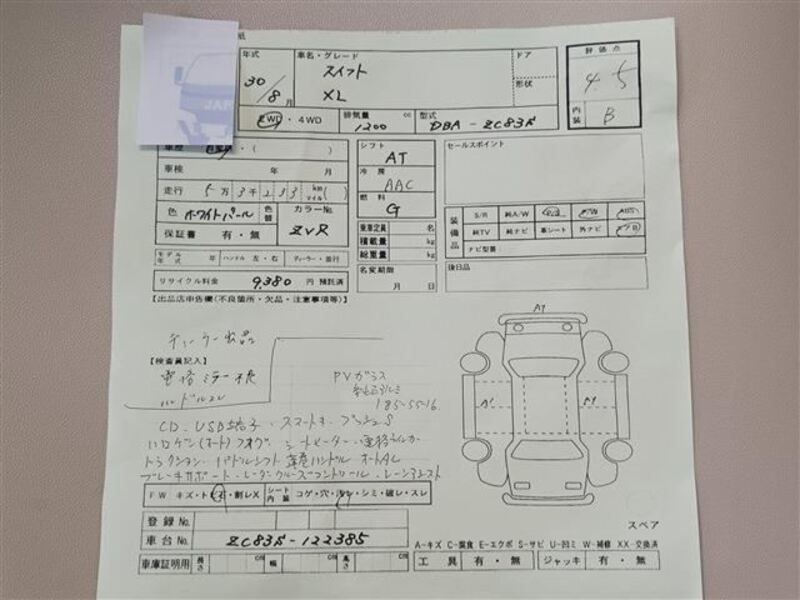 紙
JAPA
年式
車名・グレード
ドア
評価点
30/8月
スイフト
XL
形状
4.5
内装 B
2WD・4WD
排気量 1200 cc
型式 DBA-ZC83S
車歴 自家用・( )
シフト AT
セールスポイント
車検 年 月
冷房 AAC
走行 5万3千233 km マイル( )
燃料 G
色 ホワイトパール 色替
カラーNo. ZVR
保証書 有・無
乗車定員 名
積載量 kg
総重量 kg
装備品
S/R 純A/W P/S P/W ABS
純TV 純ナビ 革シート 外ナビ エアB
ナビ型番:
モデル年式 年 ハンドル 左・右 ディーラー・並行
名変期限 月 日
後日品
リサイクル料金 9,380 円 預託済
【出品店申告欄(不良箇所・欠品・注意事項等)】
ディーラー出品
【検査員記入】
電格ミラー
ハンドルスレ
PVガラス
185-55-16
CD・USB端子・スマートキー・プッシュS
ハロゲン(オート)フォグ シートヒーター・電格ウインカー
パドルシフト 革巻ハンドル オートAC
ブレーキサポート・レーダークルーズコントロール・レーンアシスト
A1
A1
A1
FW キズ・トビ石・割レX
シート内装 コゲ・穴・汚レ・シミ・破レ・スレ
登録No.
車台No. ZC83S-122385
スペア
A-キズ C-腐食 E-エクボ S-サビ U-凹ミ W-補修 XX-交換済
車庫証明用 長さ cm 幅 cm 高さ cm
工具 有・無 ジャッキ 有・無